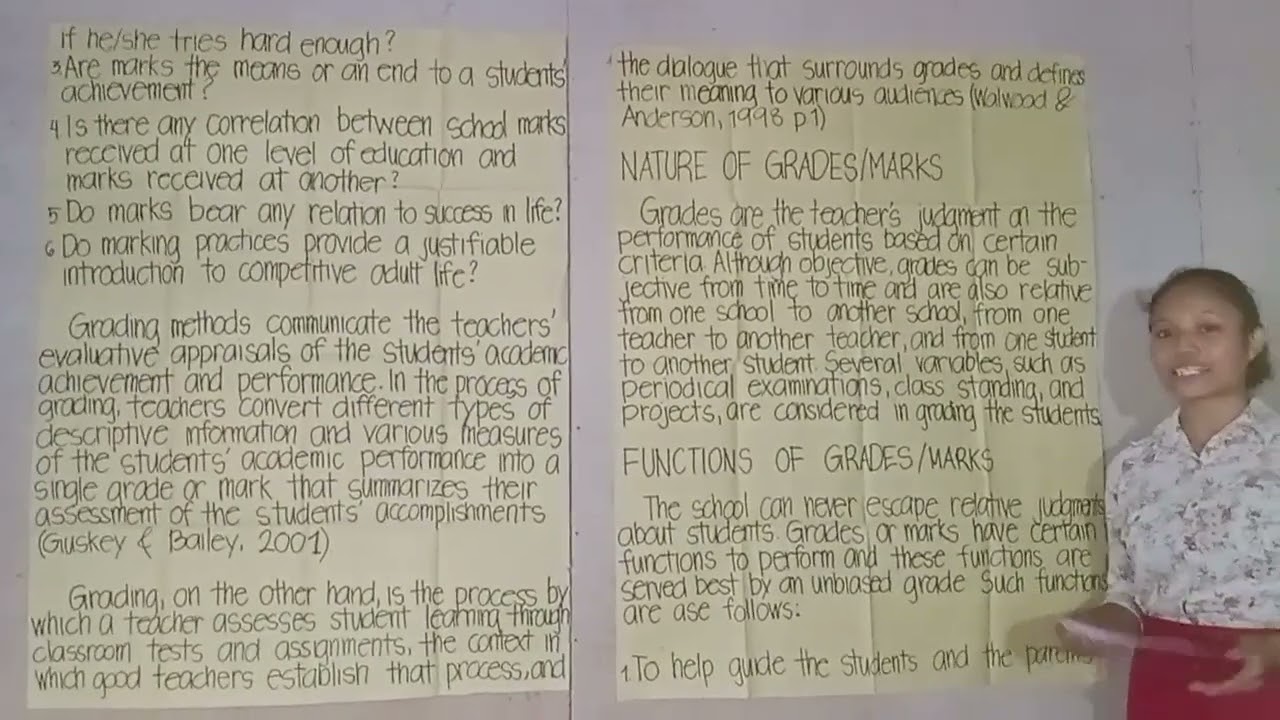 if he/she tries hard enough?
3 Are marks the means or an end to a students'
achievement?
4 Is there any correlation between school marks
received at one level of education and
marks received at another?
5 Do marks bear any relation to success in life?
6 Do marking practices provide a justifiable
introduction to competitive adult life?
Grading methods communicate the teachers'
evaluative appraisals of the students' academic
achievement and performance. In the process of
grading, teachers convert different types of
descriptive information and various measures
of the students' academic performance into a
single grade or mark that summarizes their
assessment of the students' accomplishments
(Guskey & Bailey, 2001)
Grading, on the other hand, is the process by
which a teacher assesses student learning through
classroom tests and assignments, the context in
which good teachers establish that process, and
the dialogue that surrounds grades and defines
their meaning to various audiences (Walwood &
Anderson, 1998 p1)
NATURE OF GRADES/MARKS
Grades are the teacher's judgment on the
performance of students based on certain
criteria. Although objective, grades can be sub-
jective from time to time and are also relative
from one school to another school, from one
teacher to another teacher, and from one student
to another student. Several variables, such as
periodical examinations, class standing, and
projects, are considered in grading the students.
FUNCTIONS OF GRADES/MARKS
The school can never escape relative judgments
about students. Grades or marks have certain
functions to perform and these functions are
served best by an unbiased grade. Such functions
are ase follows:
1. To help guide the students and the parents